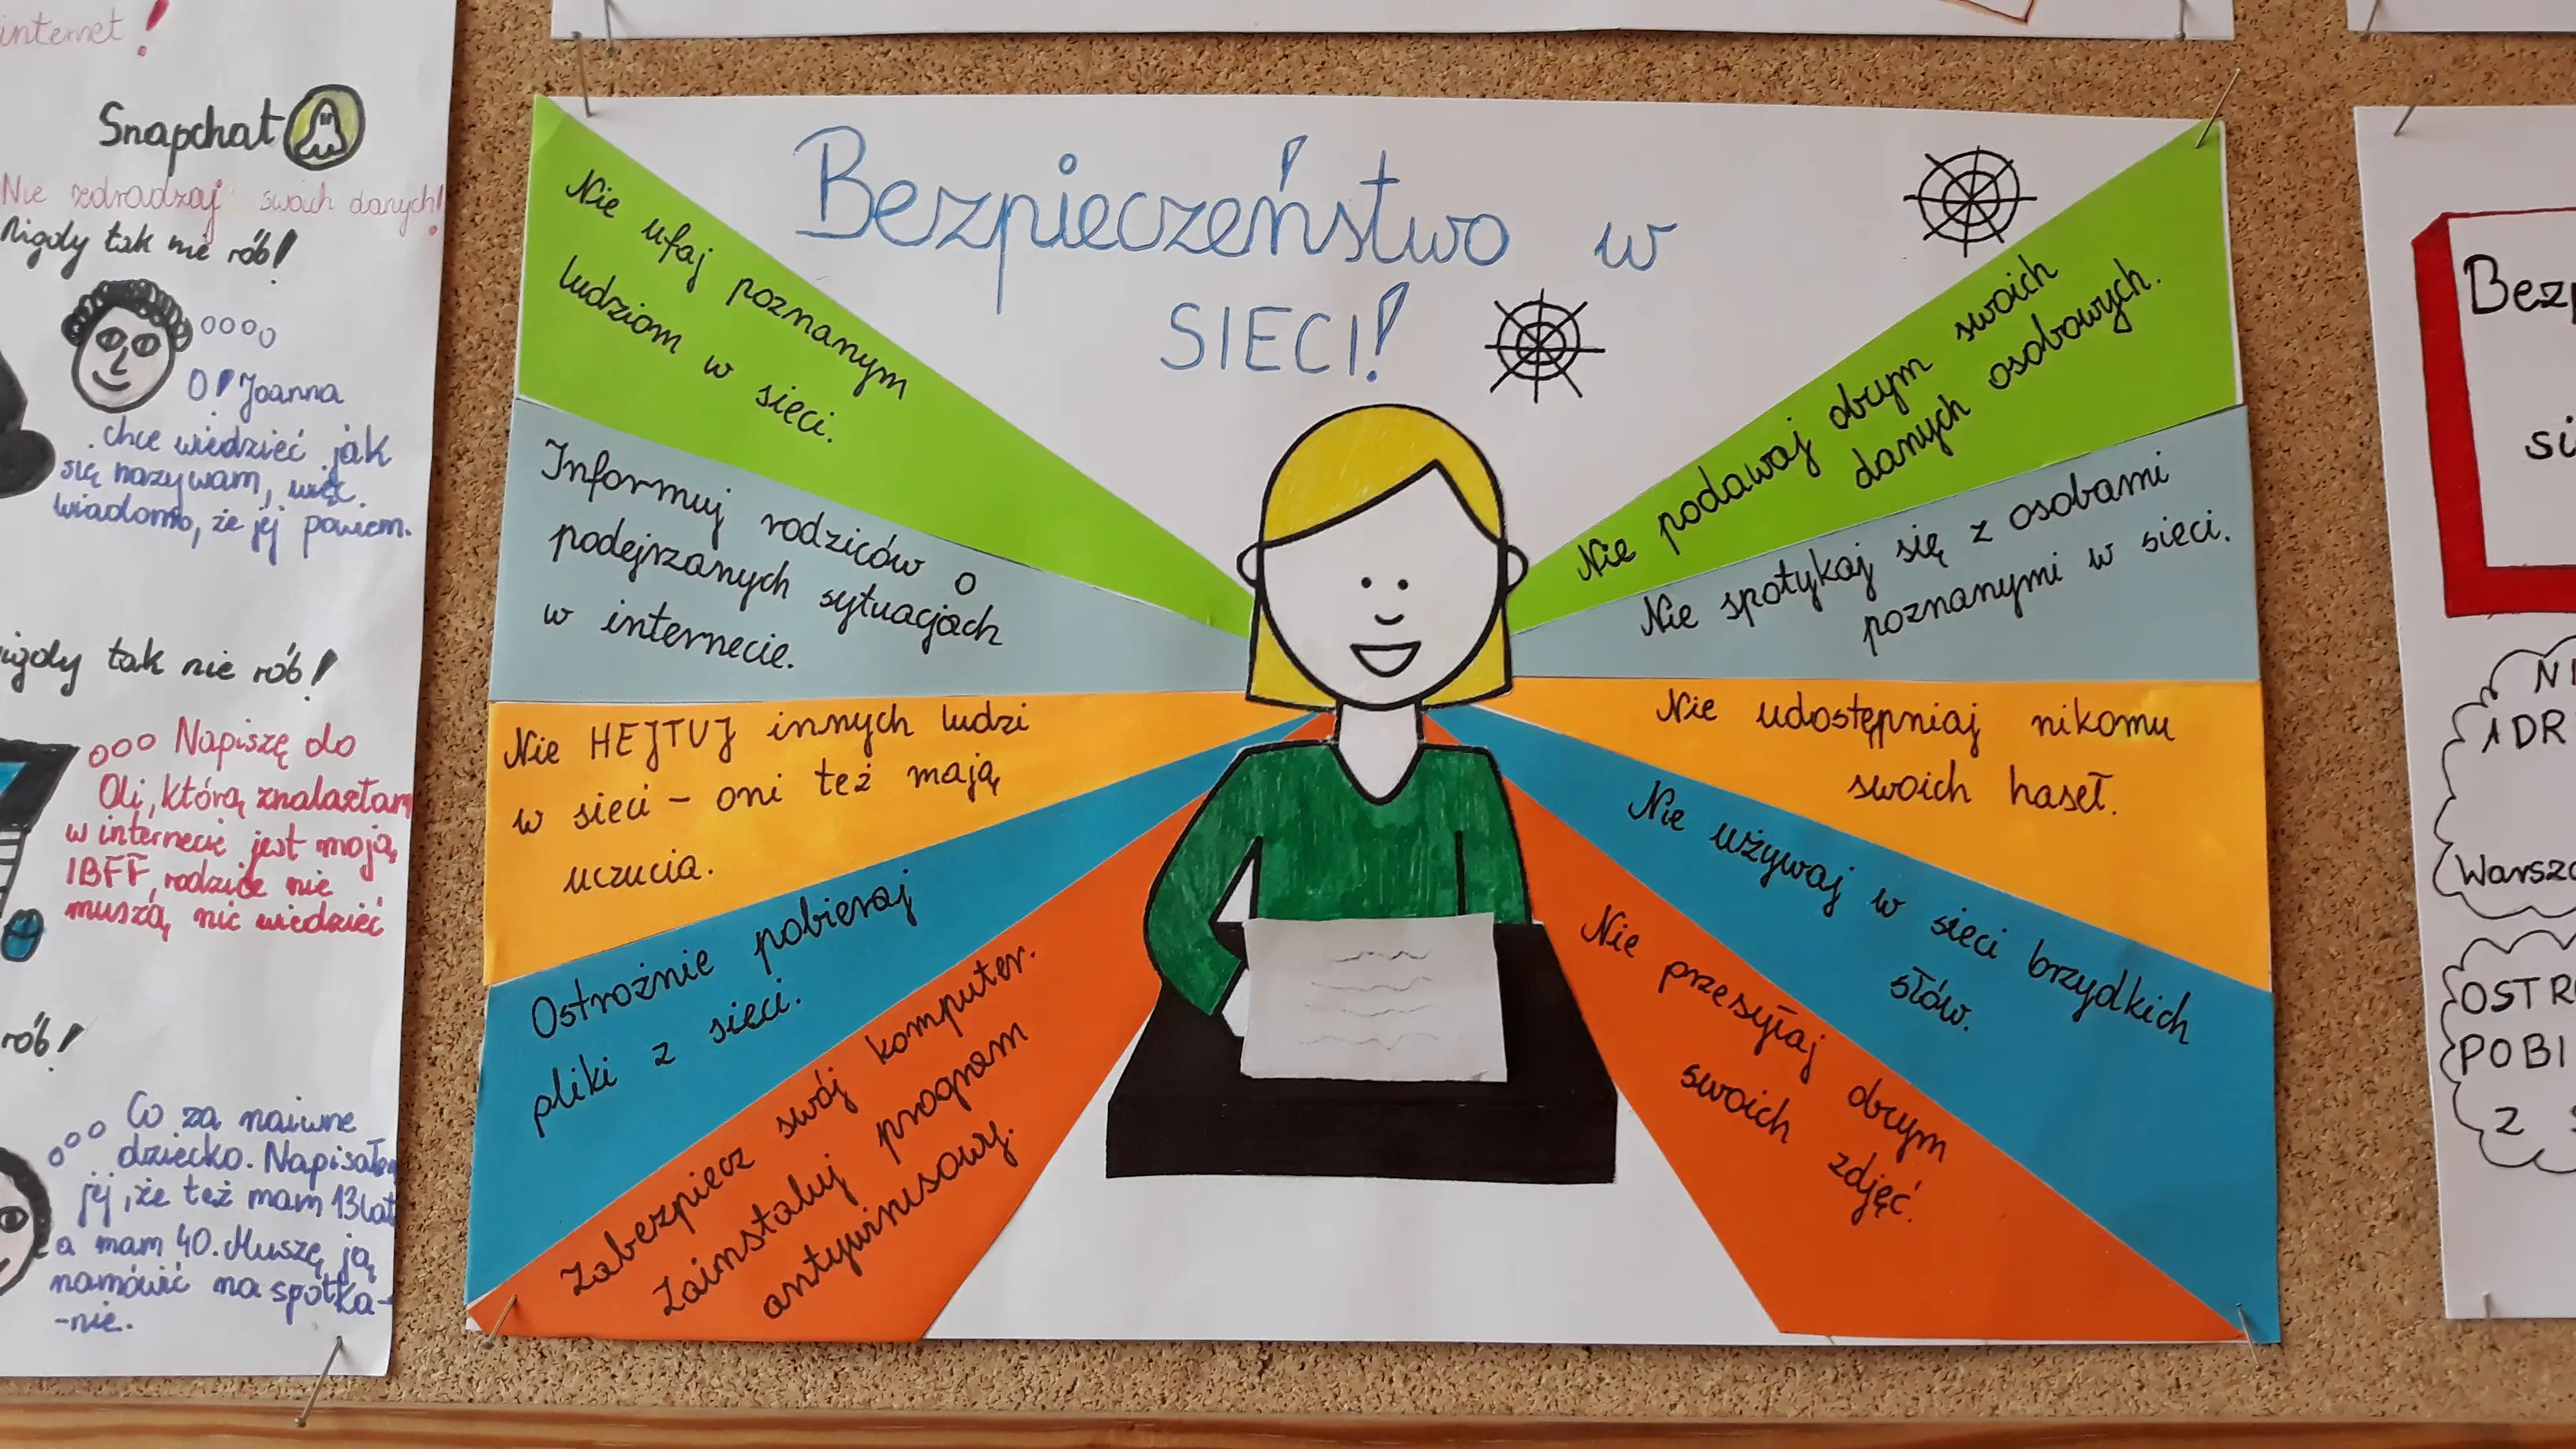 internet!
Snapchat
Nie zdradzaj swoich danych!
Nigdy tak nie rób!
O! Joanna
chce wiedzieć jak
się nazywam, więc
wiadomo, że jej powiem.
tak nie rób!
Napiszę do
Oli, którą znalazłam
w internecie jest moją
IBFF, rodzice nie
muszą nic wiedzieć
rób!
Co za naiwne
dziecko. Napisałem
jej, że też mam 13 lat
a mam 40. Muszę ją
namówić na spotka-
-nie.
Bezpieczeństwo w
SIECI!
Nie ufaj poznanym
ludziom w sieci.
Informuj rodziców o
podejrzanych sytuacjach
w internecie.
Nie HEJTUJ innych ludzi
w sieci - oni też mają
uczucia.
Ostrożnie pobieraj
pliki z sieci.
Zabezpiecz swój komputer.
Zainstaluj program
antywirusowy.
Nie podawaj obcym swoich
danych osobowych.
Nie spotykaj się z osobami
poznanymi w sieci.
Nie udostępniaj nikomu
swoich haseł.
Nie używaj w sieci brzydkich
słów.
Nie przesyłaj obcym
swoich zdjęć.
Bezp
si
NI
ADR
Warsza
OSTR
POBI
Z